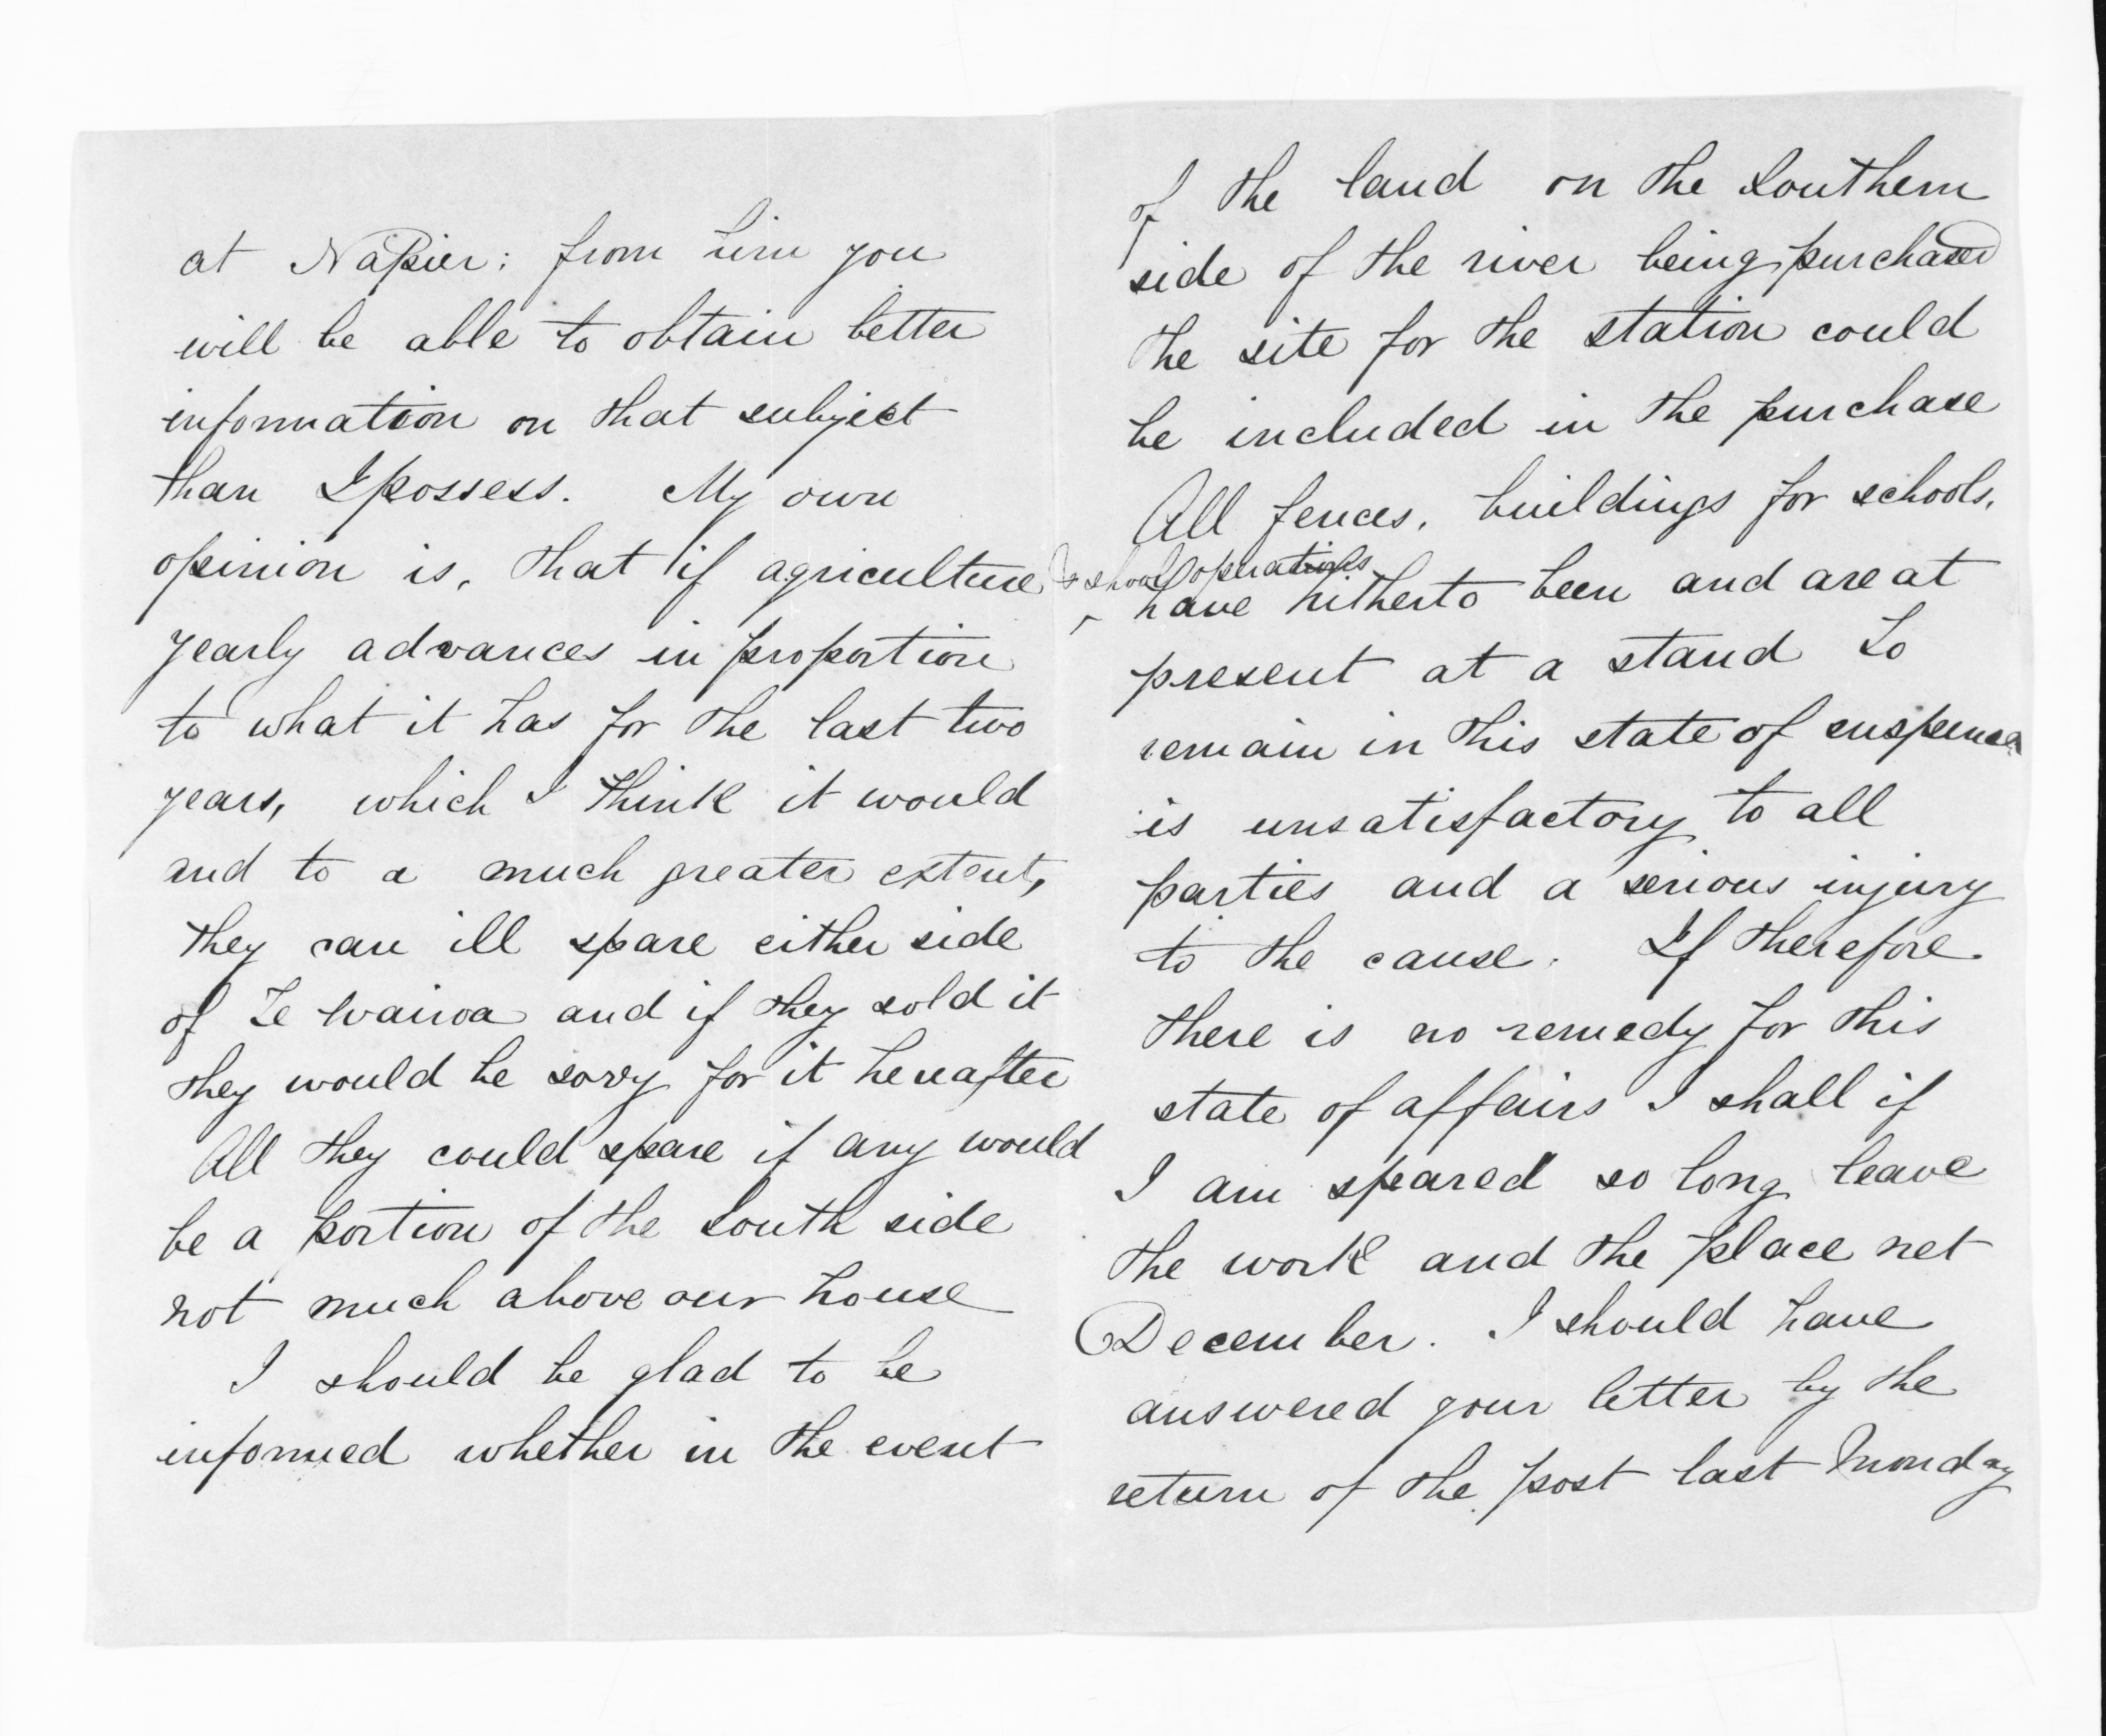 at Napier: from him you
will be able to obtain better
information on that subject
than I possess. My own
opinion is, that if agriculture
yearly advances in proportion
to what it has for the last two
years, which I think it would
and to a much greater extent,
they can ill spare either side
of Te Wairoa and if they sold it
they would be sorry for it hereafter
All they could spare if any would
be a portion of the South side
not much above our house
I should be glad to be
informed whether in the event
of the land on the Southern
side of the river being purchased
the site for the station could
be included in the purchase
All fences, buildings for schools,
& school operations
have hitherto been and are at
present at a stand To
remain in this state of suspense
is unsatisfactory to all
parties and a serious injury
to the cause. If therefore
there is no remedy for this
state of affairs I shall if
I am spared so long leave
the work and the place net
December. I should have
answered your letter by the
return of the post last Monday